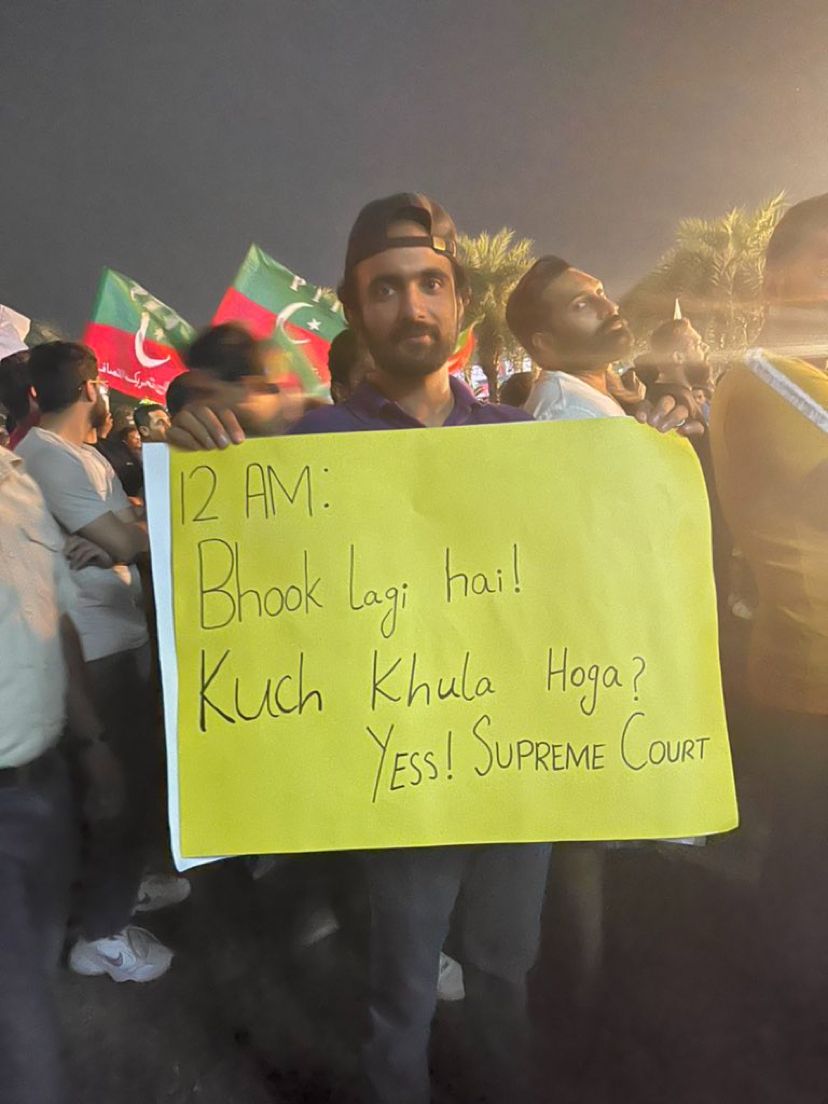 12 AM:
Bhook lagi hai!
Kuch Khula Hoga?
Yess! Supreme Court
تحریک انصاف